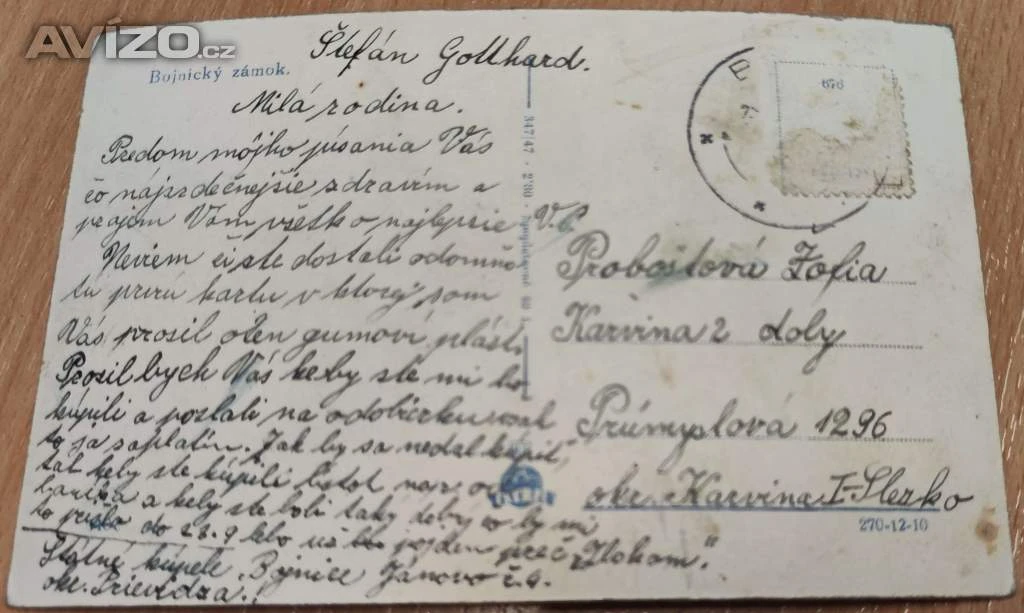 AVÍZO.cz
Štefán Gotthard.
Bojnický zámok.
Milá rodina.
Predom môjho písania Vás
čo najsrdečnejšie zdravím a
prajem Vám všetko najlepšie
Neviem či ste dostali odomňa
tú prvú kartu v ktorej som
Vás prosil o ten gumoví plášť.
Prosil bych Vás keby ste mi ho
kúpili a poslali na odobierku
to ja zaplatím. Jak by sa nedal kúpiť,
tak keby ste kúpili
a keby ste boli taký dobrý čo by mi
ho prišlo do 28.9 lebo už pojdem preč "Ztohom".
Štátné kúpele "Bojnice Jánovo č.
okr. Prievidza.!
347/47 - 2'80 -
676
V.P.
Proboštová Žofia
Karvina 2 doly
Průmyslová 1296
okr. Karvina I-Slezko
270-12-10